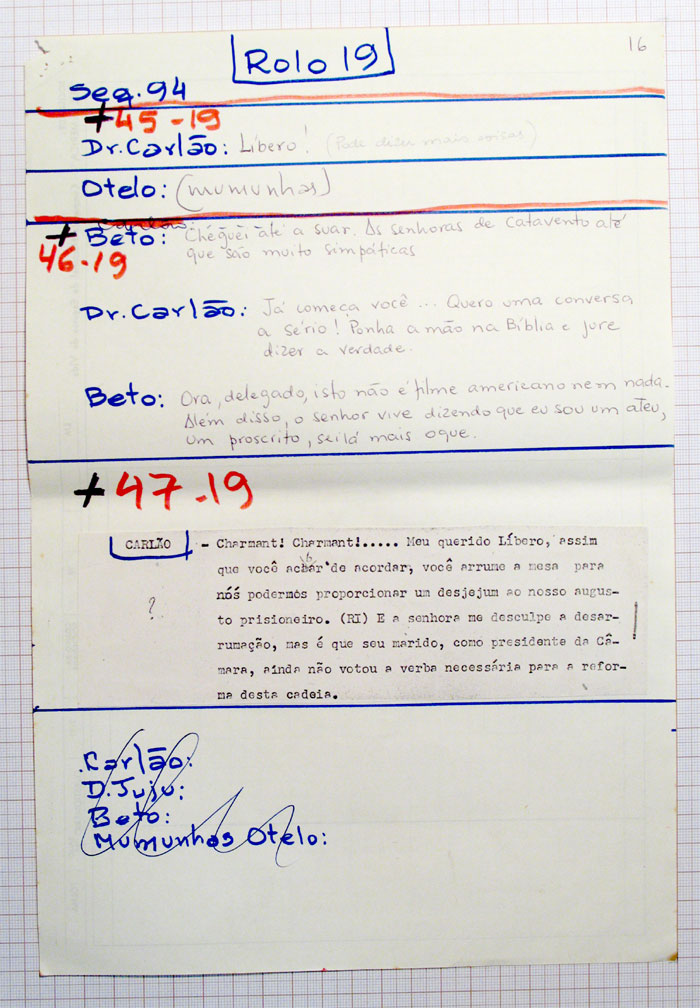 16
Rolo 19
Seq. 94
+ 45-19
Dr. Carlão: Líbero! (Pode dizer mais coisas)
Otelo: (mumunhas)
Carlão
+ Beto: Cheguei até a suar. As senhoras de Catavento até
46-19 que são muito simpáticas
Dr. Carlão: Já começa você... Quero uma conversa
a sério! Ponha a mão na Bíblia e jure
dizer a verdade.
Beto: Ora, delegado, isto não é filme americano nem nada.
Além disso, o senhor vive dizendo que eu sou um ateu,
um proscrito, sei lá mais o que.
+ 47-19
CARLÃO - Charmant! Charmant!..... Meu querido Líbero, assim
que você acbar de acordar, você arrume a mesa para
? nós podermos proporcionar um desjejum ao nosso augus-
to prisioneiro. (RI) E a senhora me desculpe a desar-
rumação, mas é que seu marido, como presidente da Câ-
mara, ainda não votou a verba necessária para a refor-
ma desta cadeia.
Carlão:
D. Juju:
Beto:
Mumunhas Otelo: